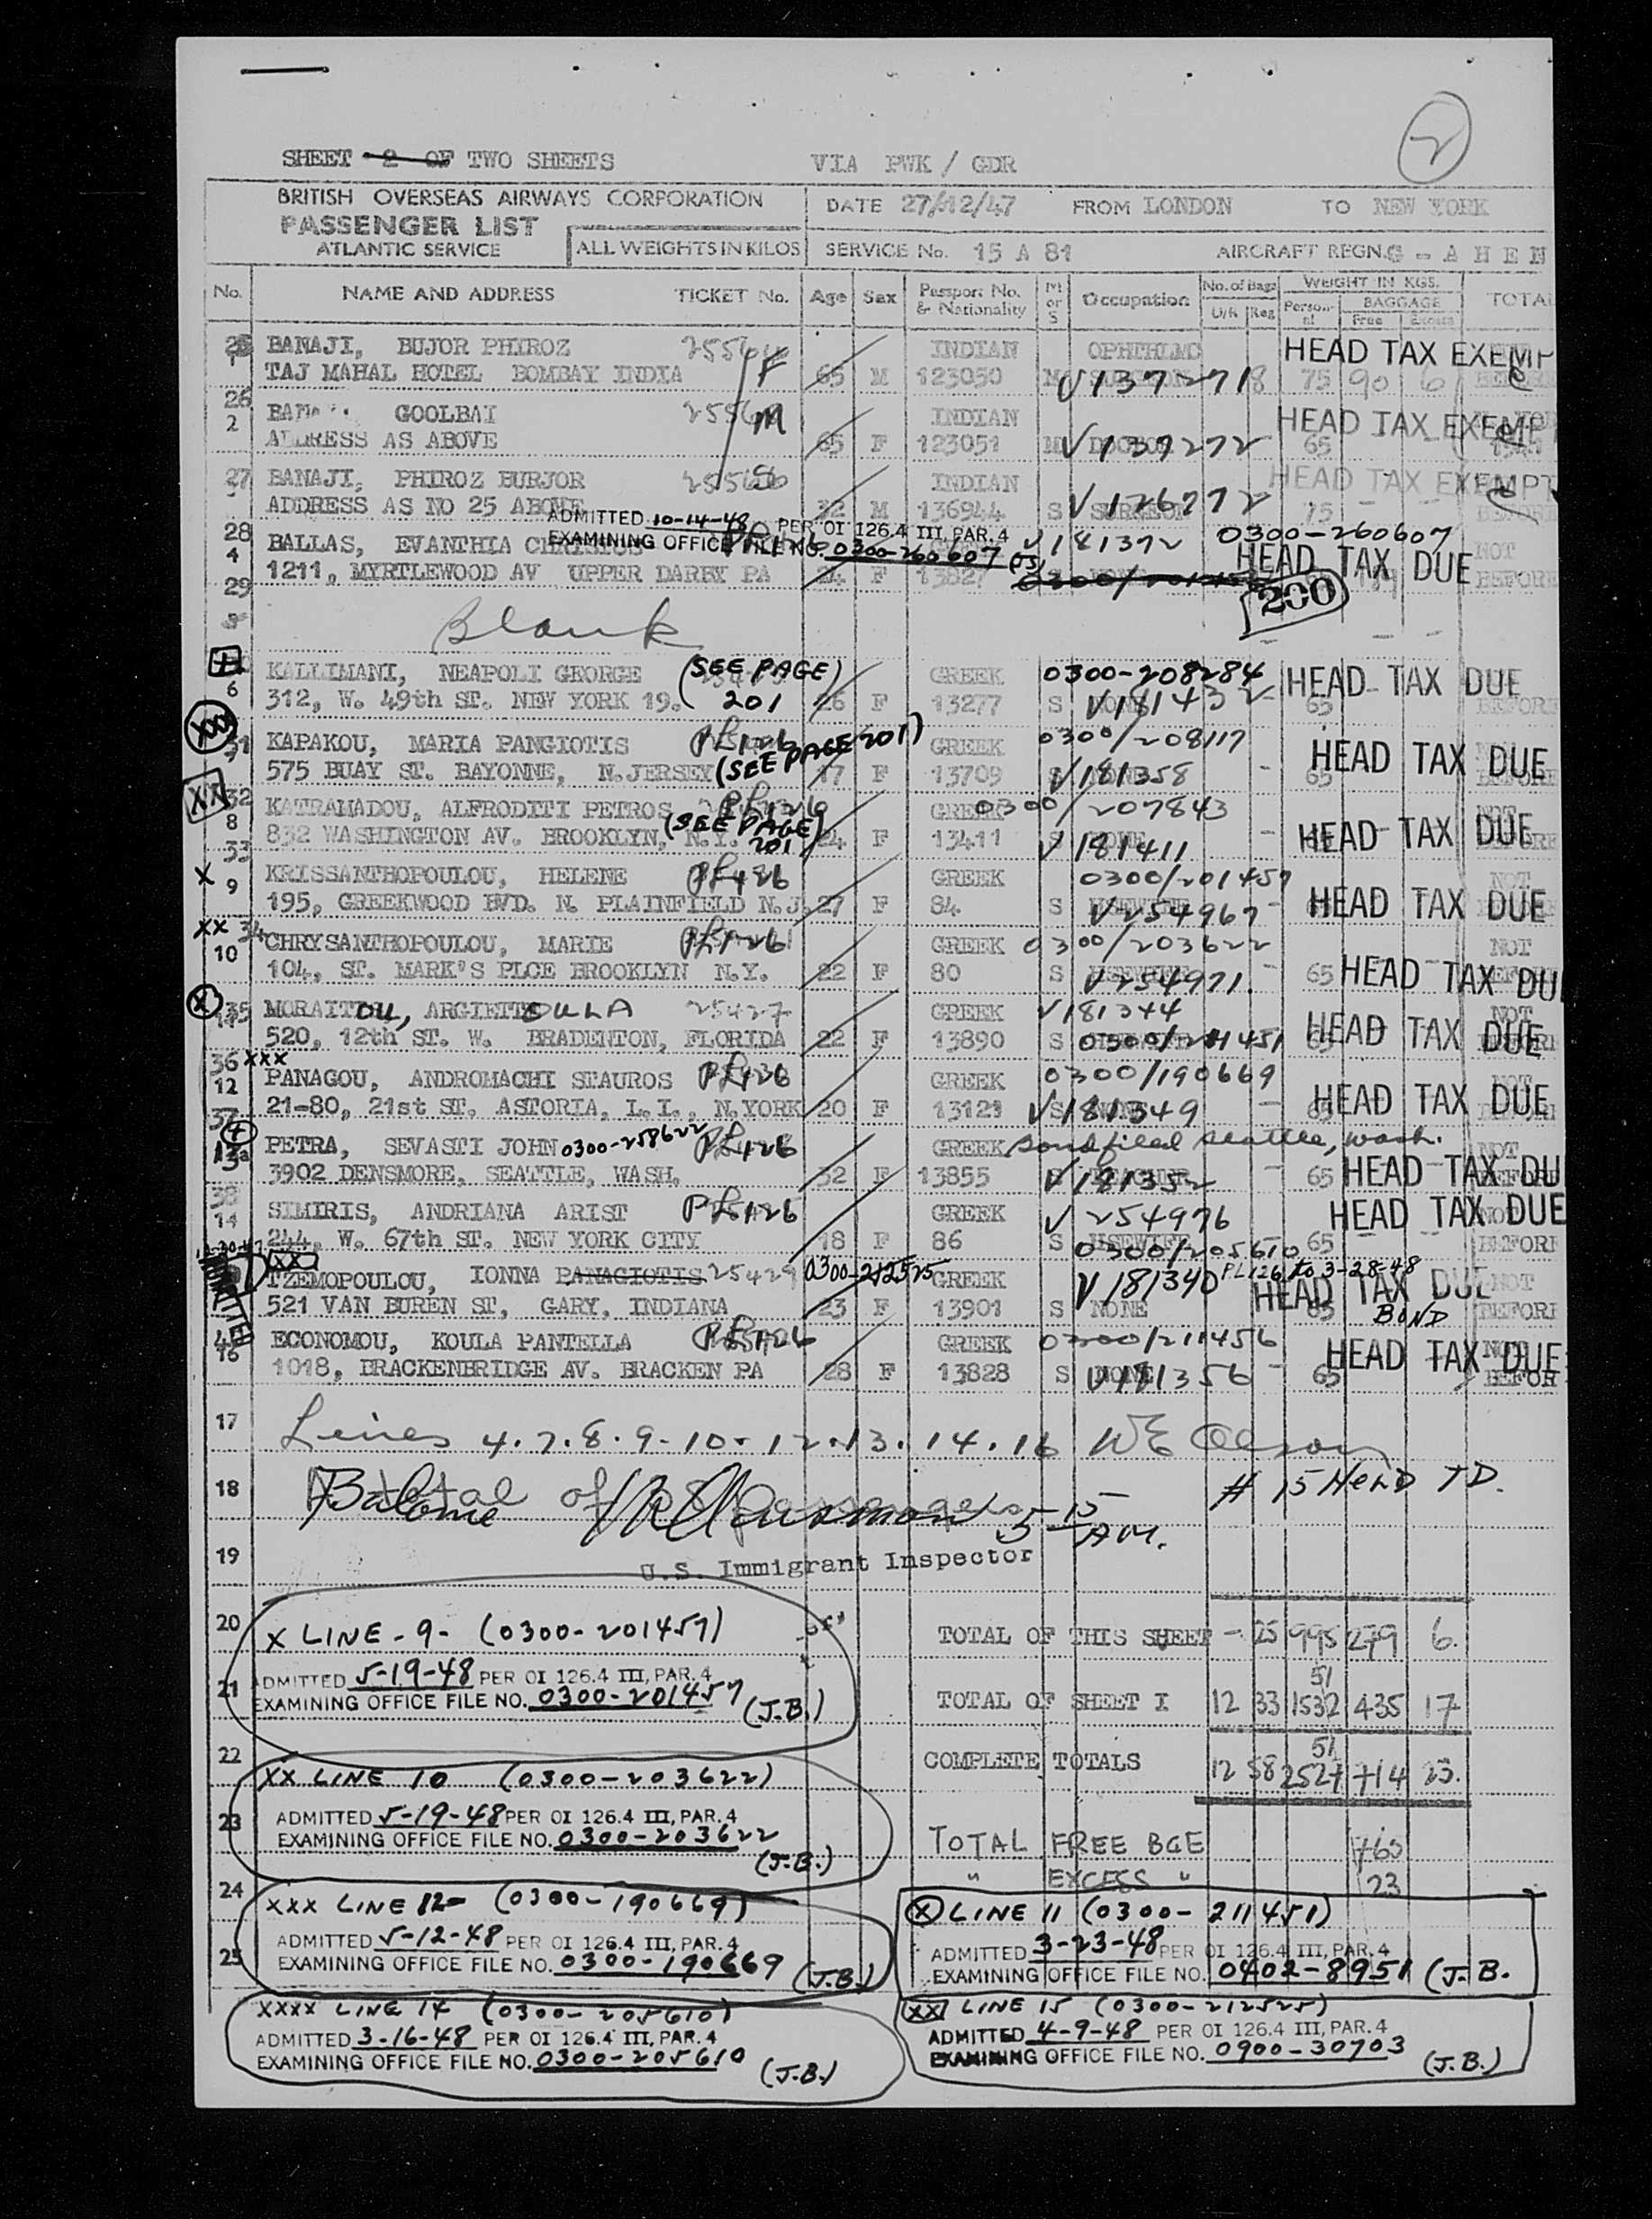 2
SHEET 2 OF TWO SHEETS VIA PWK / GDR
BRITISH OVERSEAS AIRWAYS CORPORATION DATE 27/12/47 FROM LONDON TO NEW YORK
PASSENGER LIST
ATLANTIC SERVICE ALL WEIGHTS IN KILOS SERVICE No. 15 A 81 AIRCRAFT REGN. G - A H E N
No. NAME AND ADDRESS TICKET No. Age Sex Passport No. & Nationality M or S Occupation No. of Bags U/R Reg WEIGHT IN KGS. Personal BAGGAGE Free Excess TOTAL
BANAJI, BUJOR PHIROZ INDIAN HEAD TAX EXEMP
1 TAJ MAHAL HOTEL BOMBAY INDIA F 65 M 123050 M V 137271 8 75 90 6
26 GOOLBAI INDIAN HEAD TAX EXEMP
2 ADDRESS AS ABOVE M 65 F 123051 M V 137272 65
27 BANAJI, PHIROZ BURJOR INDIAN HEAD TAX EXEMPT
ADDRESS AS NO 25 ABOVE S 32 M 136944 S SURGEON 75
ADMITTED 10-14-48 PER OI 126.4 III, PAR. 4
EXAMINING OFFICE FILE NO. 0300-260607
28 BALLAS, EVANTHIA V 181372 0300-260607 NOT
4 1211, MYRTLEWOOD AV UPPER DARBY PA 24 F 13827 HEAD TAX DUE BEFORE
29 200
Blank
KALLIMANI, NEAPOLI GEORGE (SEE PAGE) GREEK 0300-208284 HEAD TAX DUE
6 312, W. 49th ST. NEW YORK 19. 201 26 F 13277 S V 181432 65 BEFORE
XXX
31 KAPAKOU, MARIA PANGIOTIS PL126 GREEK 0300/208117 HEAD TAX DUE
7 575 BUAY ST. BAYONNE, N.JERSEY (SEE PAGE 201) 17 F 13709 S V 181358 - 65 BEFORE
XX
32 KATRAMADOU, ALFRODITI PETROS PL126 GREEK 0300/207843 NOT
8 832 WASHINGTON AV. BROOKLYN, N.Y. (SEE PAGE) 201 24 F 13411 V 181411 - HEAD TAX DUE
33 KRISSANTHOPOULOU, HELENE PL126 GREEK 0300/201457 NOT
X 9 195, GREEKWOOD BVD. N. PLAINFIELD N.J. 27 F 84 S V 254967 - HEAD TAX DUE
XX 34 CHRYSANTHOPOULOU, MARIE PL126 GREEK 0300/203622 NOT
10 104, ST. MARK'S PLCE BROOKLYN N.Y. 22 F 80 S V 254971 - 65 HEAD TAX DU
X 35 MORAITOU, ARGIETTOULA 25427 GREEK V 181344 NOT
11 520, 12th ST. W. BRADENTON, FLORIDA 22 F 13890 S 0300/211451 HEAD TAX DUE
36 XXX
12 PANAGOU, ANDROMACHI STAUROS PL126 GREEK 0300/190669 NOT
37 21-80, 21st ST. ASTORIA, L.I., N.YORK 20 F 13121 S V 181349 - HEAD TAX DUE
13 PETRA, SEVASTI JOHN 0300-258622 PL126 GREEK Bond filed Seattle, Wash. NOT
3902 DENSMORE, SEATTLE, WASH. 32 F 13855 V 181352 - 65 HEAD TAX DU
38 SIMIRIS, ANDRIANA ARIST PL126 GREEK V 254976 HEAD TAX DUE
14 244, W. 67th ST. NEW YORK CITY 18 F 86 S HSEWIFE 0300/205610 65
XX
TZEMOPOULOU, IONNA PANAGIOTIS 25429 0300-212525 GREEK V 181340 PL126 to 3-28-48 NOT
521 VAN BUREN ST, GARY, INDIANA 23 F 13901 S NONE HEAD TAX DUE 65 BOND
ECONOMOU, KOULA PANTELLA PL126 GREEK 0300/211456 HEAD TAX DUE
16 1018, BRACKENBRIDGE AV. BRACKEN PA 28 F 13828 S V 181356 - 65
17 Lines 4.7.8.9-10-12.13.14.16 WE Olson
18 # 15 HELD T D.
5-15 AM.
19 U.S. Immigrant Inspector
20 X LINE-9- (0300-201457) TOTAL OF THIS SHEET - 25 995 279 6.
21 ADMITTED 5-19-48 PER OI 126.4 III, PAR. 4
EXAMINING OFFICE FILE NO. 0300-201457 (J.B.)
51
TOTAL OF SHEET I 12 33 1532 435 17
22 51
COMPLETE TOTALS 12 58 2527 714 23.
XX LINE 10 (0300-203622)
23 ADMITTED 5-19-48 PER OI 126.4 III, PAR. 4
EXAMINING OFFICE FILE NO. 0300-203622
(J.B.)
TOTAL FREE BGE
" EXCESS " 23
24 XXX LINE 12- (0300-190669)
ADMITTED 5-12-48 PER OI 126.4 III, PAR. 4
25 EXAMINING OFFICE FILE NO. 0300-190669 (J.B.)
X LINE 11 (0300-211451)
ADMITTED 3-23-48 PER OI 126.4 III, PAR. 4
EXAMINING OFFICE FILE NO. 0402-8951 (J.B.
XXXX LINE 14 (0300-205610)
ADMITTED 3-16-48 PER OI 126.4 III, PAR. 4
EXAMINING OFFICE FILE NO. 0300-205610 (J.B.)
XX LINE 15 (0300-212525)
ADMITTED 4-9-48 PER OI 126.4 III, PAR. 4
EXAMINING OFFICE FILE NO. 0900-30703 (J.B.)